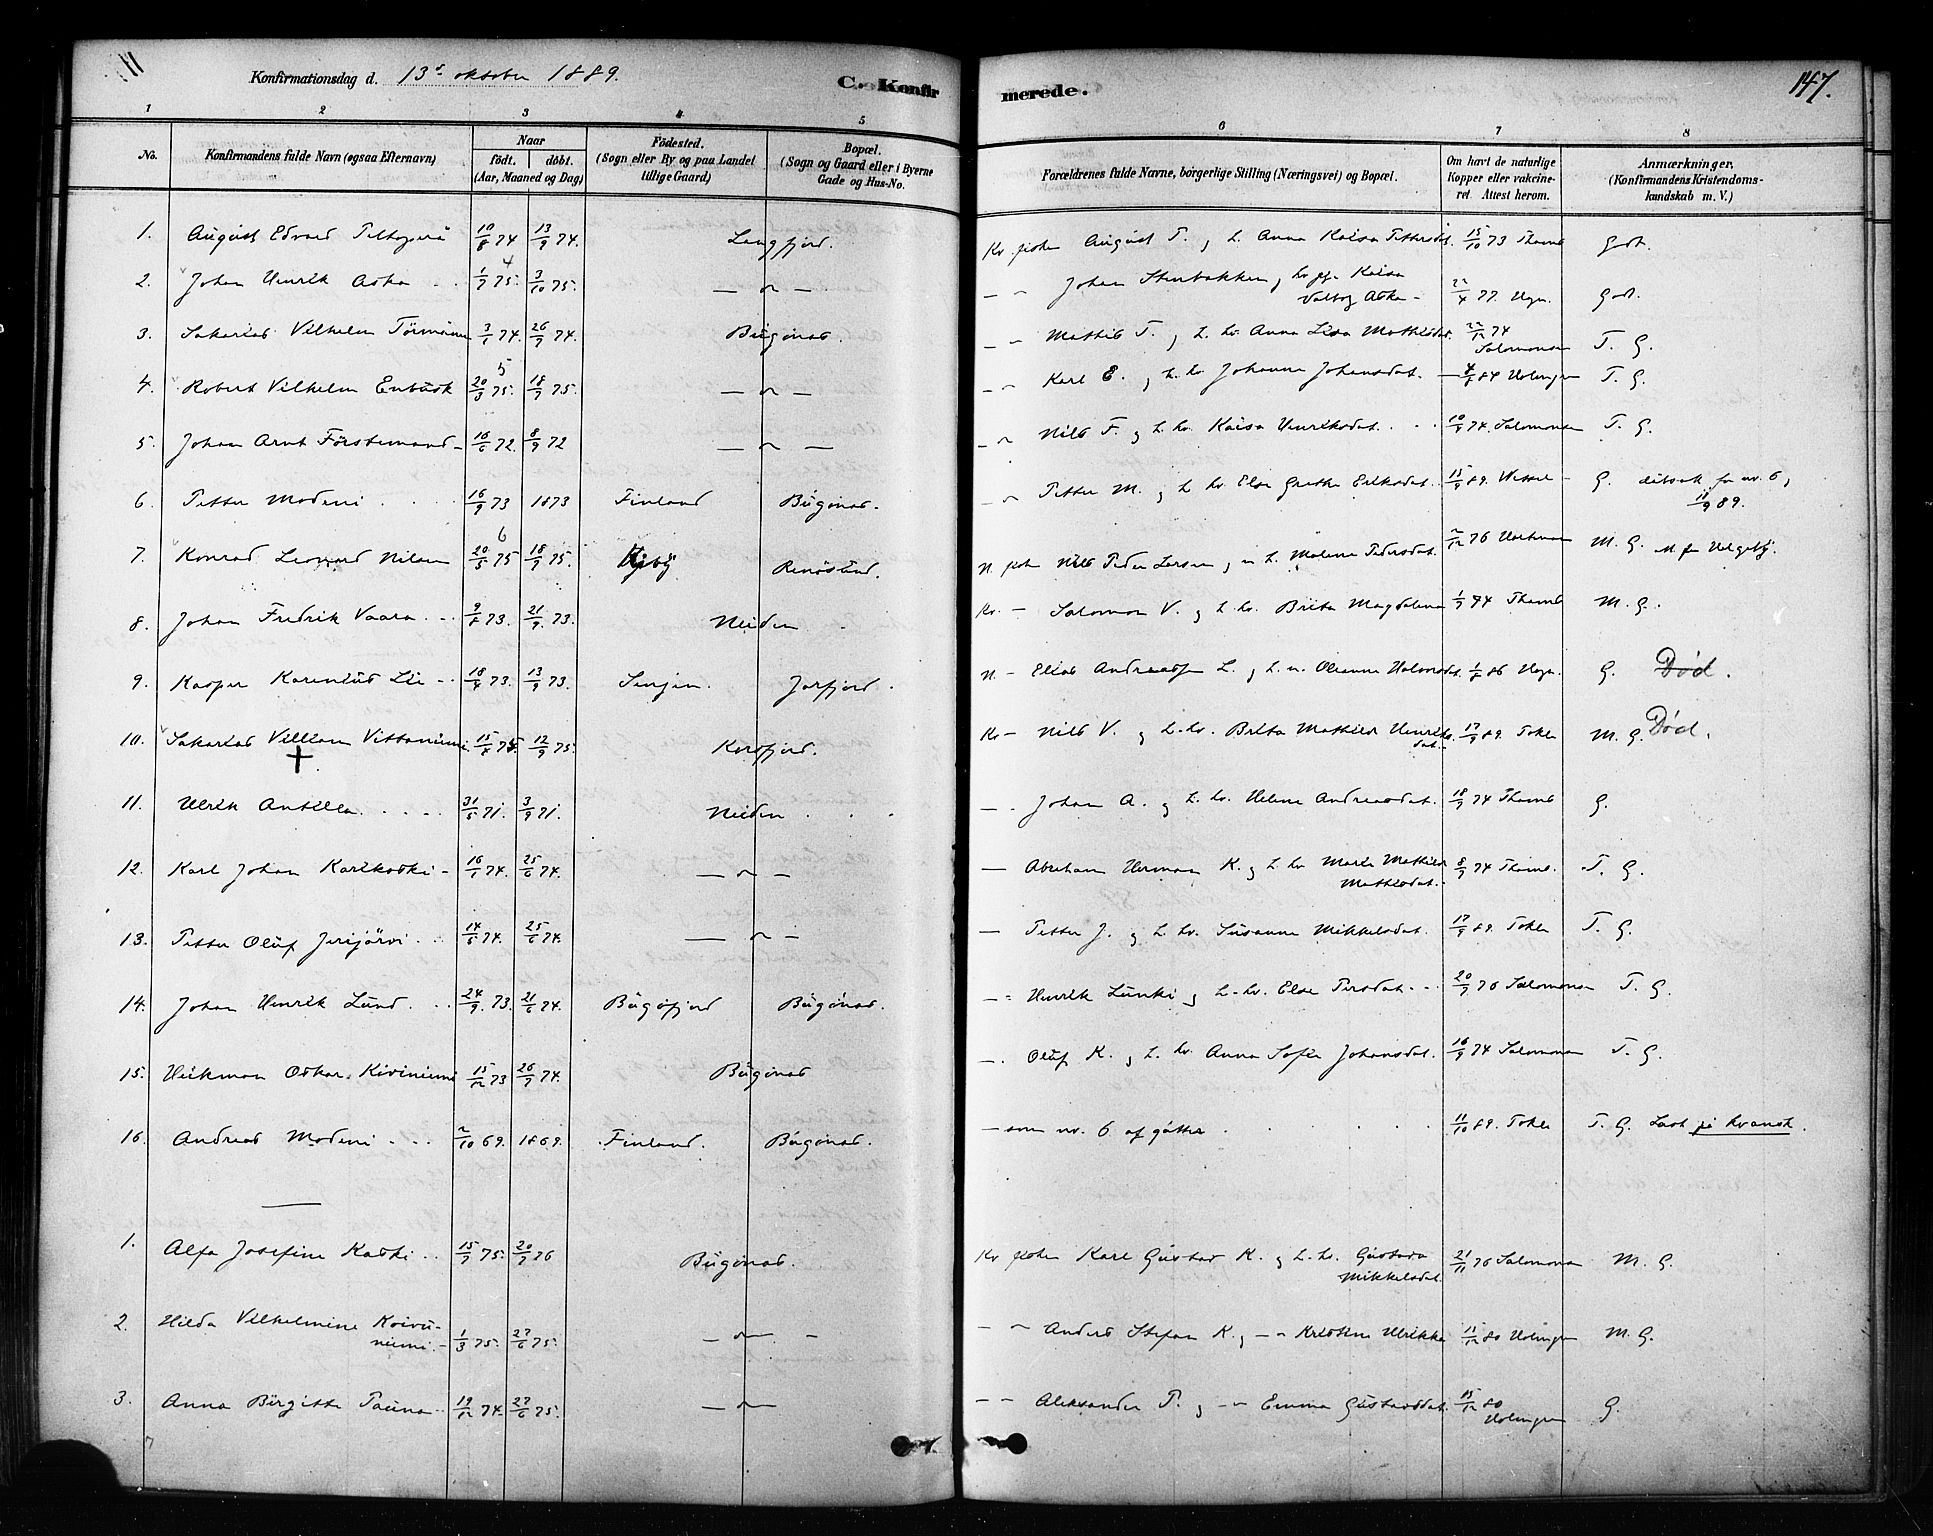 Konfirmationsdag d. 13de oktober 1889.
C. Konfirmerede.
147.
1 2 3 4 5 6 7 8
No.
Konfirmandens fulde Navn (ogsaa Efternavn)
Naar
födt. döbt.
(Aar, Maaned og Dag)
Födested.
(Sogn eller By og paa Landet
tillige Gaard)
Bopæl.
(Sogn og Gaard eller i Byerne
Gade og Hus-No.
Forældrenes fulde Navne, börgerlige Stilling (Næringsvei) og Bopæl.
Om havt de naturlige
Kopper eller vakcine-
ret. Attest herom.
Anmærkninger.
(Konfirmandens Kristendoms-
kundskab m. V.)
1. August Edvard 10/8 74 13/9 74. Langfjord. August T. og h. Anna Kaisa 15/10 73 Thams Godt.
2. Johan Henrik Aska 1/7 75. 3/10 75. — " — Johan Stenbakken, Kaisa
Valborg Aska 22/4 77. Godt.
3. Sakarias Vilhelm Törmänen 3/1 74. 26/9 74. Bugönes. Mathis T. og h. kv. Anna Lisa Mathisdat. 22/12 74
Salomonsen T. G.
4. Robert Vilhelm Enbusk 20/3 75. 18/7 75. — " — Karl E. og h. kv Johanna Johansdat. Holmgren T. G.
5. Johan Arnt Förstemand 16/6 72. 8/9 72 — " — Nils F. og h. kv. Kaisa Henriksdat. 10/9 74. Salomonsen T. G.
6. Petter Modeni 16/9 73 1873 Finland Bugönes. Petter M. og h kv. Else Grethe Eriksdat. 15/9 89. Wessel G. attest for nr. 6,
18/9 89.
7. Konrad Leonard Nilsen 20/5 75 18/7 75. Kjobj Renösund. N. Nils Peder Larsen og h. Malene Pedersdat. 2/12 76 M. G.
8. Johan Fredrik Vaara 9/8 73. 21/9 73. Neiden Kv. — Salomon V. og h. kv. Brita Magdalena 1/9 74 Thams M. G.
9. Kasper Karenius Lie 18/4 73. 13/9 73. Senjen. Jarfjord. N — Elias Andreassen L. og h. n. Oleanna 86 G. Död.
10. Sakarias Villiam Vittaniemi 15/8 75. 12/9 75. Korsfjord. Kv — Nils V. og h. kv. Brita Mathilde Henriks-
dat. 17/9 89. Tokle M. G. Död.
+
11. Ulrik Antilla 31/5 71. 3/9 71. Neiden Johan A. og h. kv. Helena Andreasdat. 18/9 74 Thams G.
12. Karl Johan Karikoski 16/1 74. 25/6 74. — " — Abraham Herman K. og h kv Maria Mathilde
Mathisdat. 8/9 74 Thams. T. G.
13. Petter Oluf Jerijärvi 14/5 74. 25/6 74. — " — Petter J. og h kv. Susanna Mikkelsdat. 17/9 89. Tokle T. G.
14. Johan Henrik Lund 24/9 73. 21/6 74. Bugöfjord Bugönes. Henrik Lunki og h. kv. Else Persdat. 20/9 76 Salomonsen T. G.
15. Heikman Oskar Kiviniemi 15/12 73 26/7 74. Bugönes Oluf K. og h. kv. Anna Sofie Johansdat. 16/9 74 Salomonsen T. G.
16. Andreas Modeni 2/10 69. 1869. Finland. Bugönes. — som nr. 6 af gutter 11/10 89. Tokle T. G. Læst på kvænsk.
1. Alfa Josefine Kaski 15/7 75. 20/7 76 Bugönes. Karl Gustav K. og h. kv. Gustava
Mikkelsdat. 21/11 76 Salomonsen M. G.
2. Hilda Vilhelmine Koivu-
niemi 1/3 75. 27/6 75. — " — Anders Stefan K. og — " Kristine Ulrikka 11/12 80 Holmgren M. G.
3. Anna Birgitte Pauna 19/12 74. 27/6 75. — " — Aleksander P. og — " Emma Gustavsdat. 15/12 80
Holmgren G.